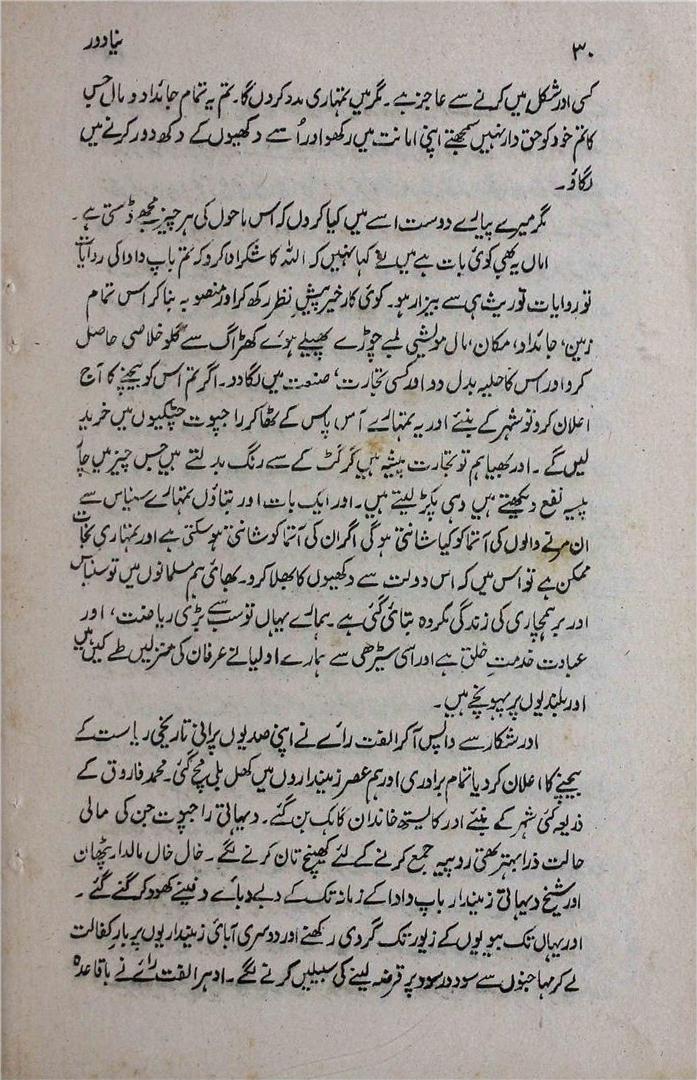 ۳۰
نیا دور
کسی اور شکل میں کرنے سے عاجز ہے۔ مگر میں تمہاری مدد کر دں گا۔ تم یہ تمام جائداد و مال جس
کا تم خود کو حق دار نہیں سمجھتے اپنی امانت میں رکھو اور اُسے دکھیوں کے دکھ دور کرنے میں
لگاؤ۔
مگر میرے پیارے دوست اسے میں کیا کروں کہ اس ماحول کی ہر چیز مجھے ڈستی ہے۔
اماں یہ بھی کوئی بات ہے میں نے کہا نہیں کہ اللہ کا شکر ادا کرو کہ تم باپ دادا کی روایات
تو روایات توریث ہی سے بیزار ہو۔ کوئی کار خیر پیشِ نظر رکھ کر اور منصوبہ بنا کر اس تمام
زمین، جائداد، مکان، مال مویشی لمبے چوڑے پھیلے ہوئے کھڑاگ سے گلو خلاصی حاصل
کرو اور اس کا حلیہ بدل دو اور کسی تجارت، صنعت میں لگا دو۔ اگر تم اس کو بیچنے کا آج
اعلان کرو تو شہر کے بنئے اور یہ تمہارے آس پاس کے ٹھاکر راجپوت چٹکیوں میں خرید
لیں گے۔ اور بھیا ہم تو تجارت پیشہ ہیں گرگٹ کے سے رنگ بدلتے ہیں جس چیز میں چار
پیسہ نفع دیکھتے ہیں وہی پکڑ لیتے ہیں۔ اور ایک بات اور بتاؤں تمہارے سنیاس سے
ان مرنے والوں کی آتما کو کیا شانتی ہوگی اگر ان کی آتما کو شانتی ہو سکتی ہے اور تمہاری نجات
ممکن ہے تو اس میں کہ اس دولت سے دکھیوں کا بھلا کرو۔ بھائی ہم مسلمانوں میں تو سنیاس
اور برہمچاری کی زندگی مکروہ بتائی گئی ہے۔ ہمارے یہاں تو سب سے بڑی ریاضت، اور
عبادت خدمتِ خلق ہے اور اسی سیڑھی سے ہمارے اولیا نے عرفان کی منزلیں طے کیں ہیں
اور بلندیوں پر پہونچے ہیں۔
اور شکار سے واپس آکر الفت رائے نے اپنی صدیوں پرانی تاریخی ریاست کے
بیچنے کا اعلان کر دیا تمام برادری اور ہم عصر زمینداروں میں کھل بلی مچ گئی۔ محمد فاروق کے
ذریعہ کئی شہر کے بنئے اور کالیستھ خاندان گاہک بن گئے۔ دیہاتی راجپوت جن کی مالی
حالت ذرا بہتر تھی روپیہ جمع کرنے کے لئے کھینچ تان کرنے لگے۔ خال خال مالدار پٹھان
اور شیخ دیہاتی زمیندار باپ دادا کے زمانہ تک کے دبے دبائے دفینے کھود کر گنے گئے۔
اور یہاں تک بیویوں کے زیور تک گردی رکھنے اور دوسری آبائی زمینداریوں پر بار کفالت
لے کر مہاجنوں سے سود در سود پر قرضہ لینے کی سبیلیں کرنے لگے۔ ادہر الفت رائے نے باقاعدہ